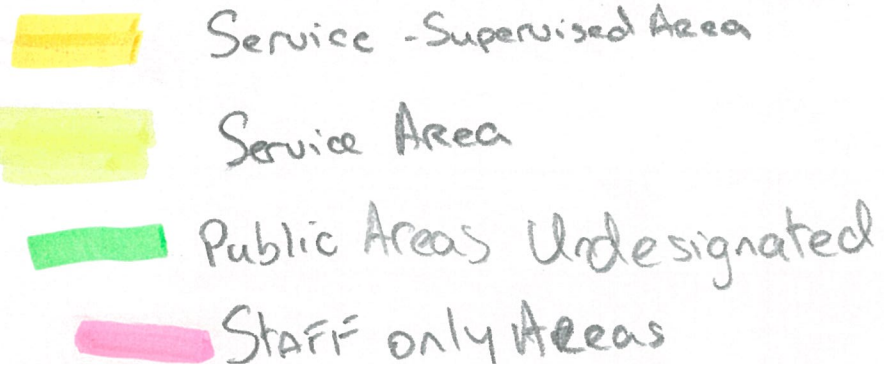 Service - Supervised Area
Service Area
Public Areas Undesignated
Staff only Areas